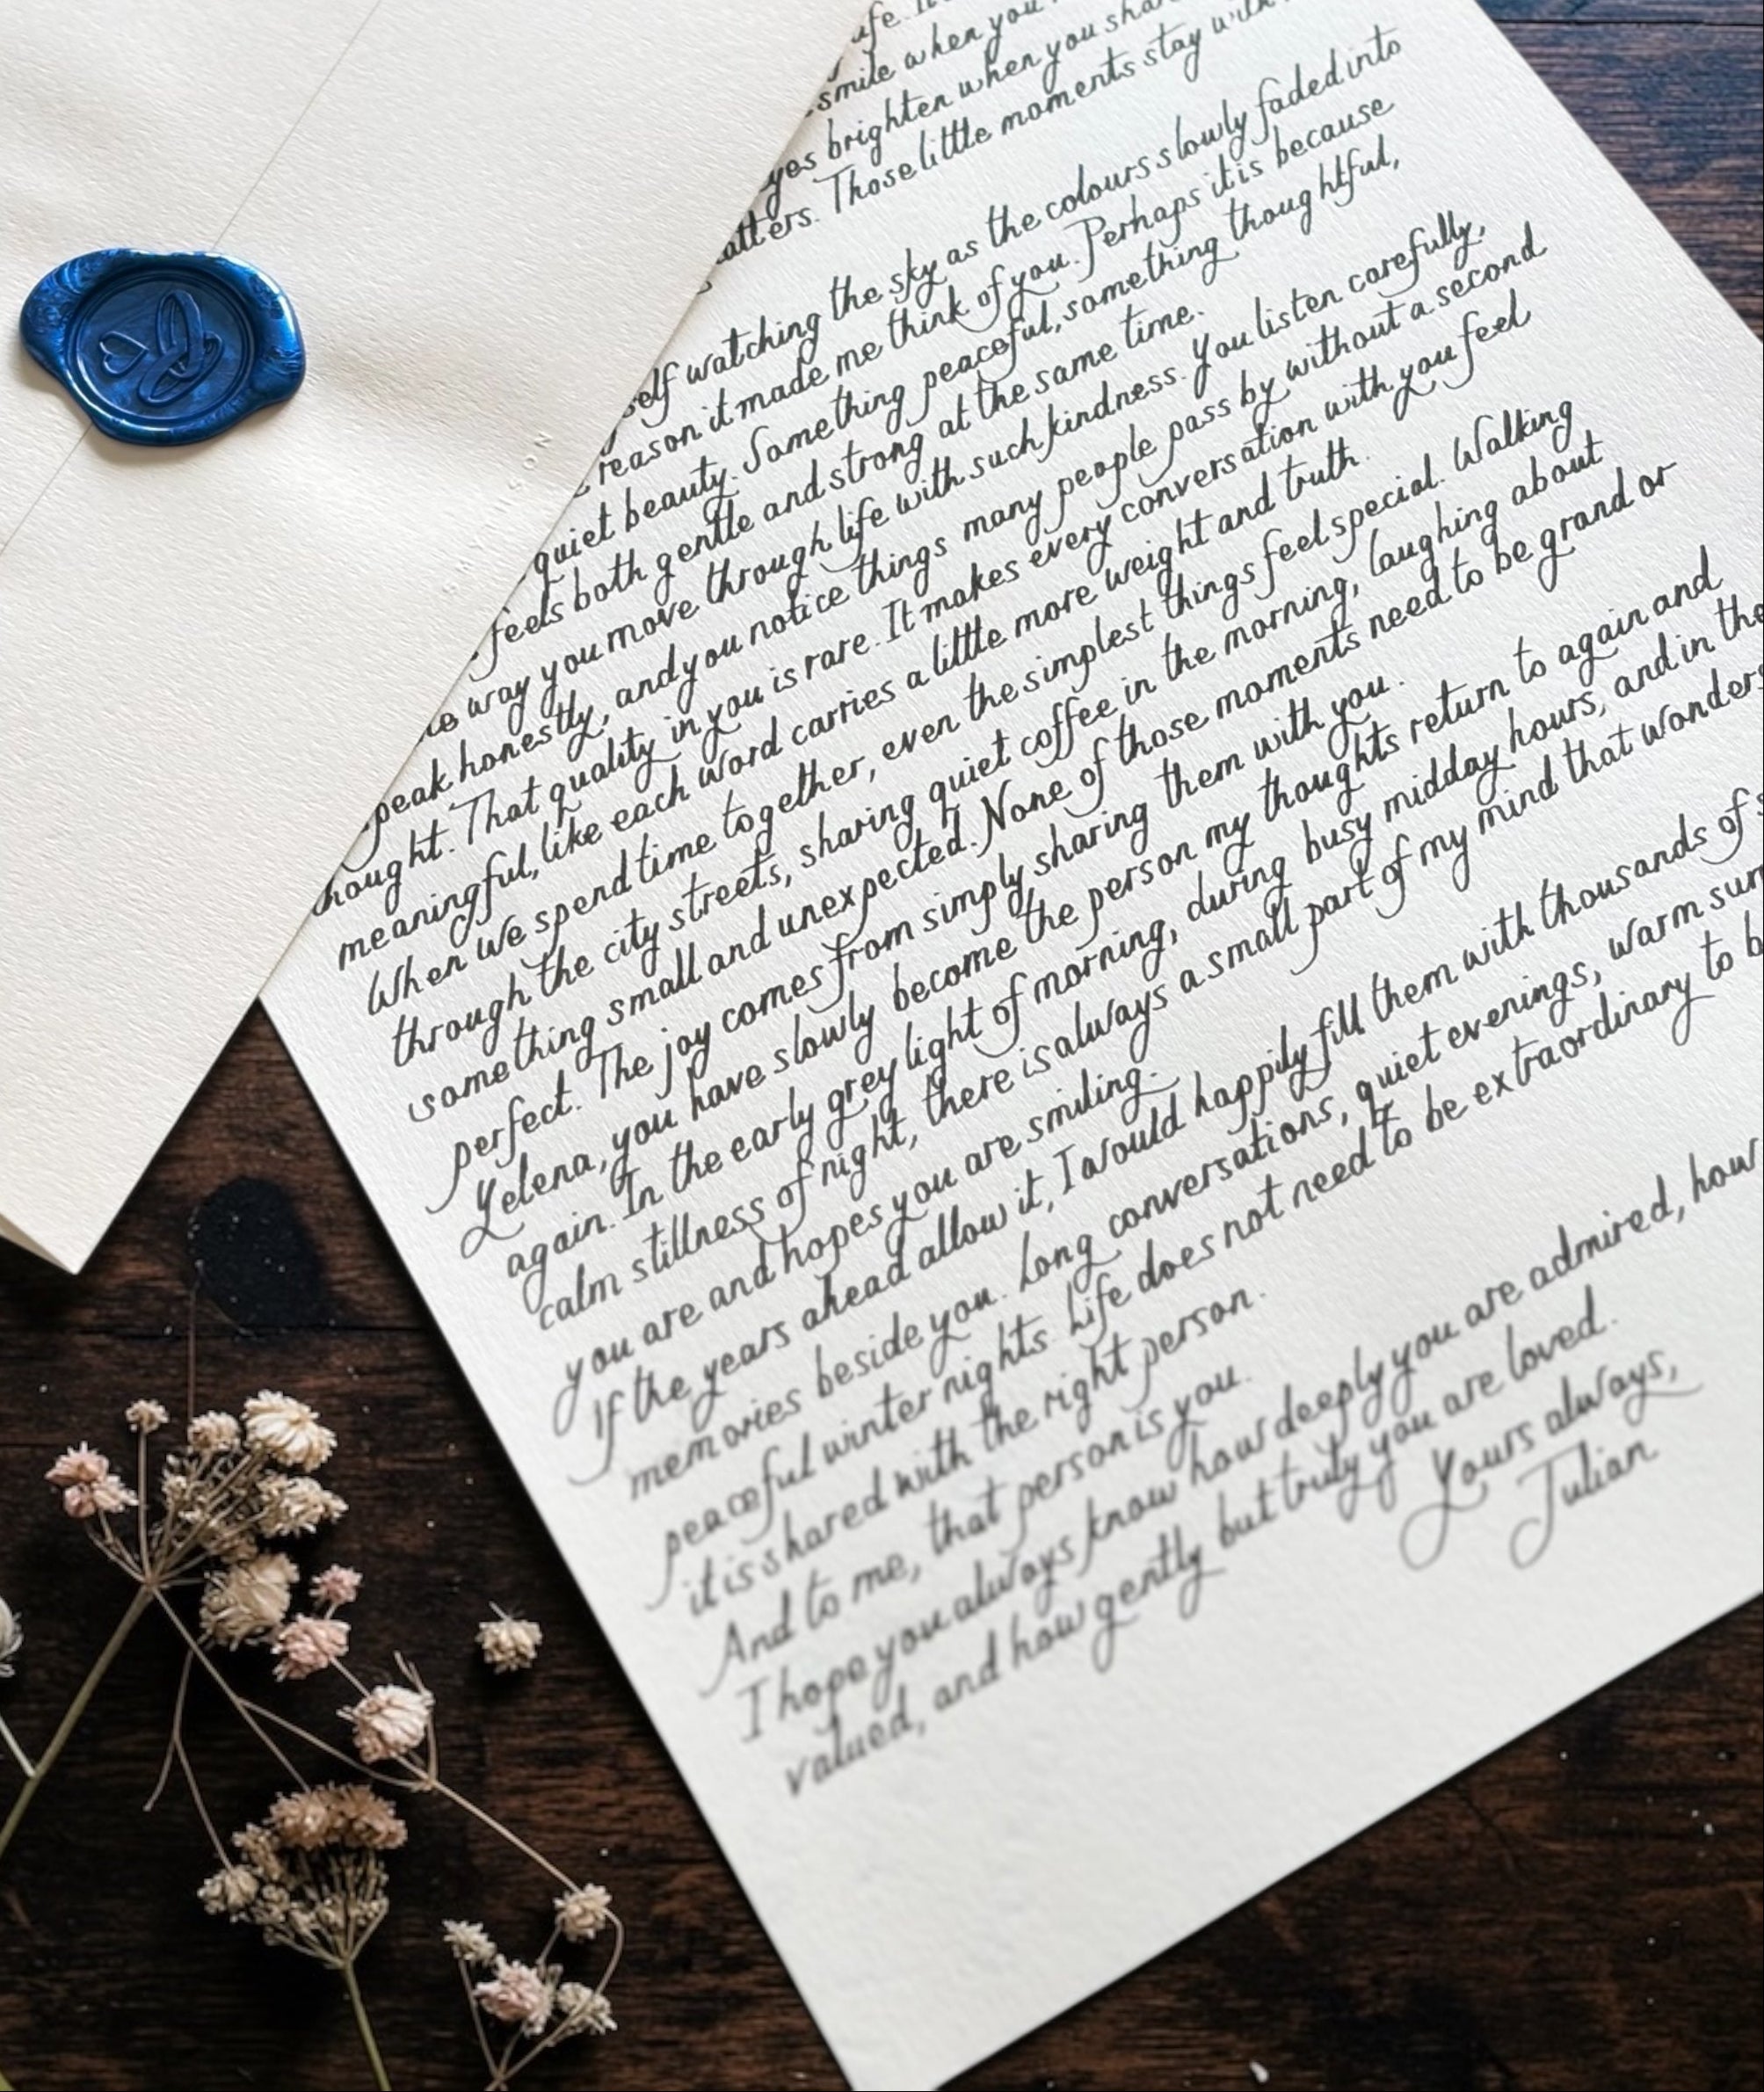 smile when you
yes brighten when you
atters. Those little moments stay
self watching the sky as the colours slowly faded into
reason it made me think of you. Perhaps it is because
quiet beauty. Something peaceful, something thoughtful,
feels both gentle and strong at the same time.
way you move through life with such kindness. You listen carefully,
peak honestly, and you notice things many people pass by without a second
hought. That quality in you is rare. It makes every conversation with you feel
meaningful, like each word carries a little more weight and truth.
When we spend time together, even the simplest things feel special. Walking
through the city streets, sharing quiet coffee in the morning, laughing about
something small and unexpected. None of those moments need to be grand or
perfect. The joy comes from simply sharing them with you.
Yelena, you have slowly become the person my thoughts return to again and
again. In the early grey light of morning, during busy midday hours, and in the
calm stillness of night, there is always a small part of my mind that wonders
you are and hopes you are smiling.
If the years ahead allow it, I would happily fill them with thousands of
memories beside you. Long conversations, quiet evenings, warm
peaceful winter nights. Life does not need to be extraordinary to
it is shared with the right person.
And to me, that person is you.
I hope you always know how deeply you are admired, how
valued, and how gently but truly you are loved.
Yours always,
Julian